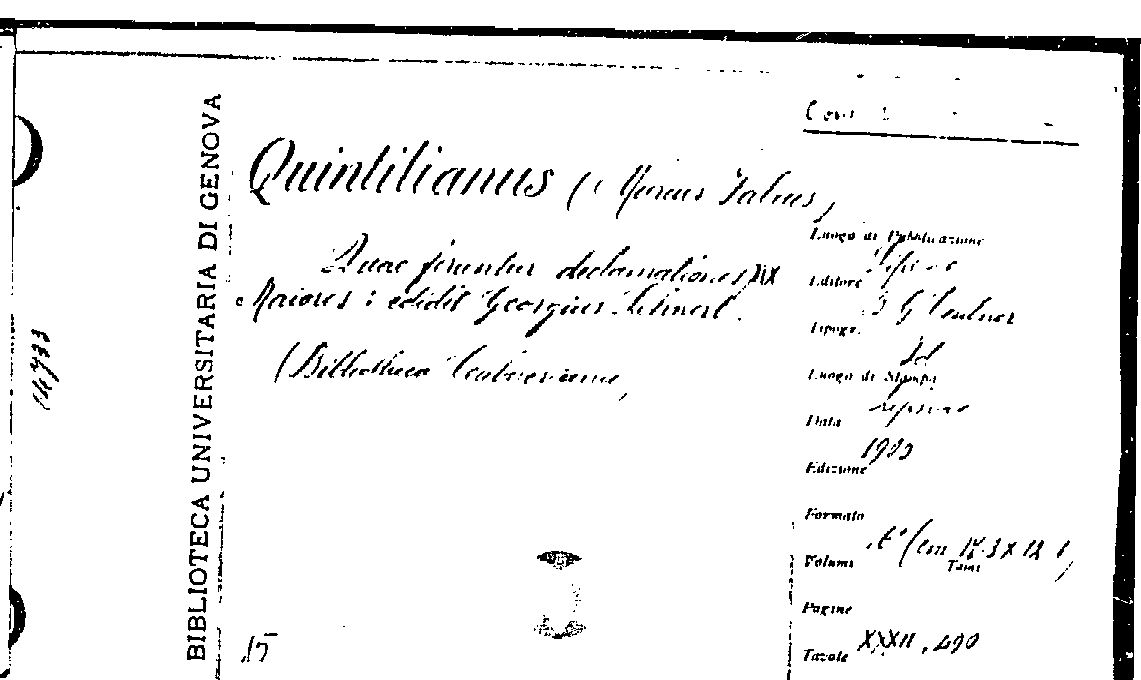 BIBLIOTECA UNIVERSITARIA DI GENOVA
Quintilianus (Marcus Fabius)
Quae feruntur declamationes XIX
Maiores: edidit Georgius Lehnert.
(Bibliotheca Teubneriana)
15
Luogo di Pubblicazione
Lipsiae
Editore
B G Teubner
Tipogr.
Id
Luogo di Stampa
Lipsiae
Data
1905
Edizione
Formato
Volumi
Tomi
Pagine
XXXII, 490
Tavole